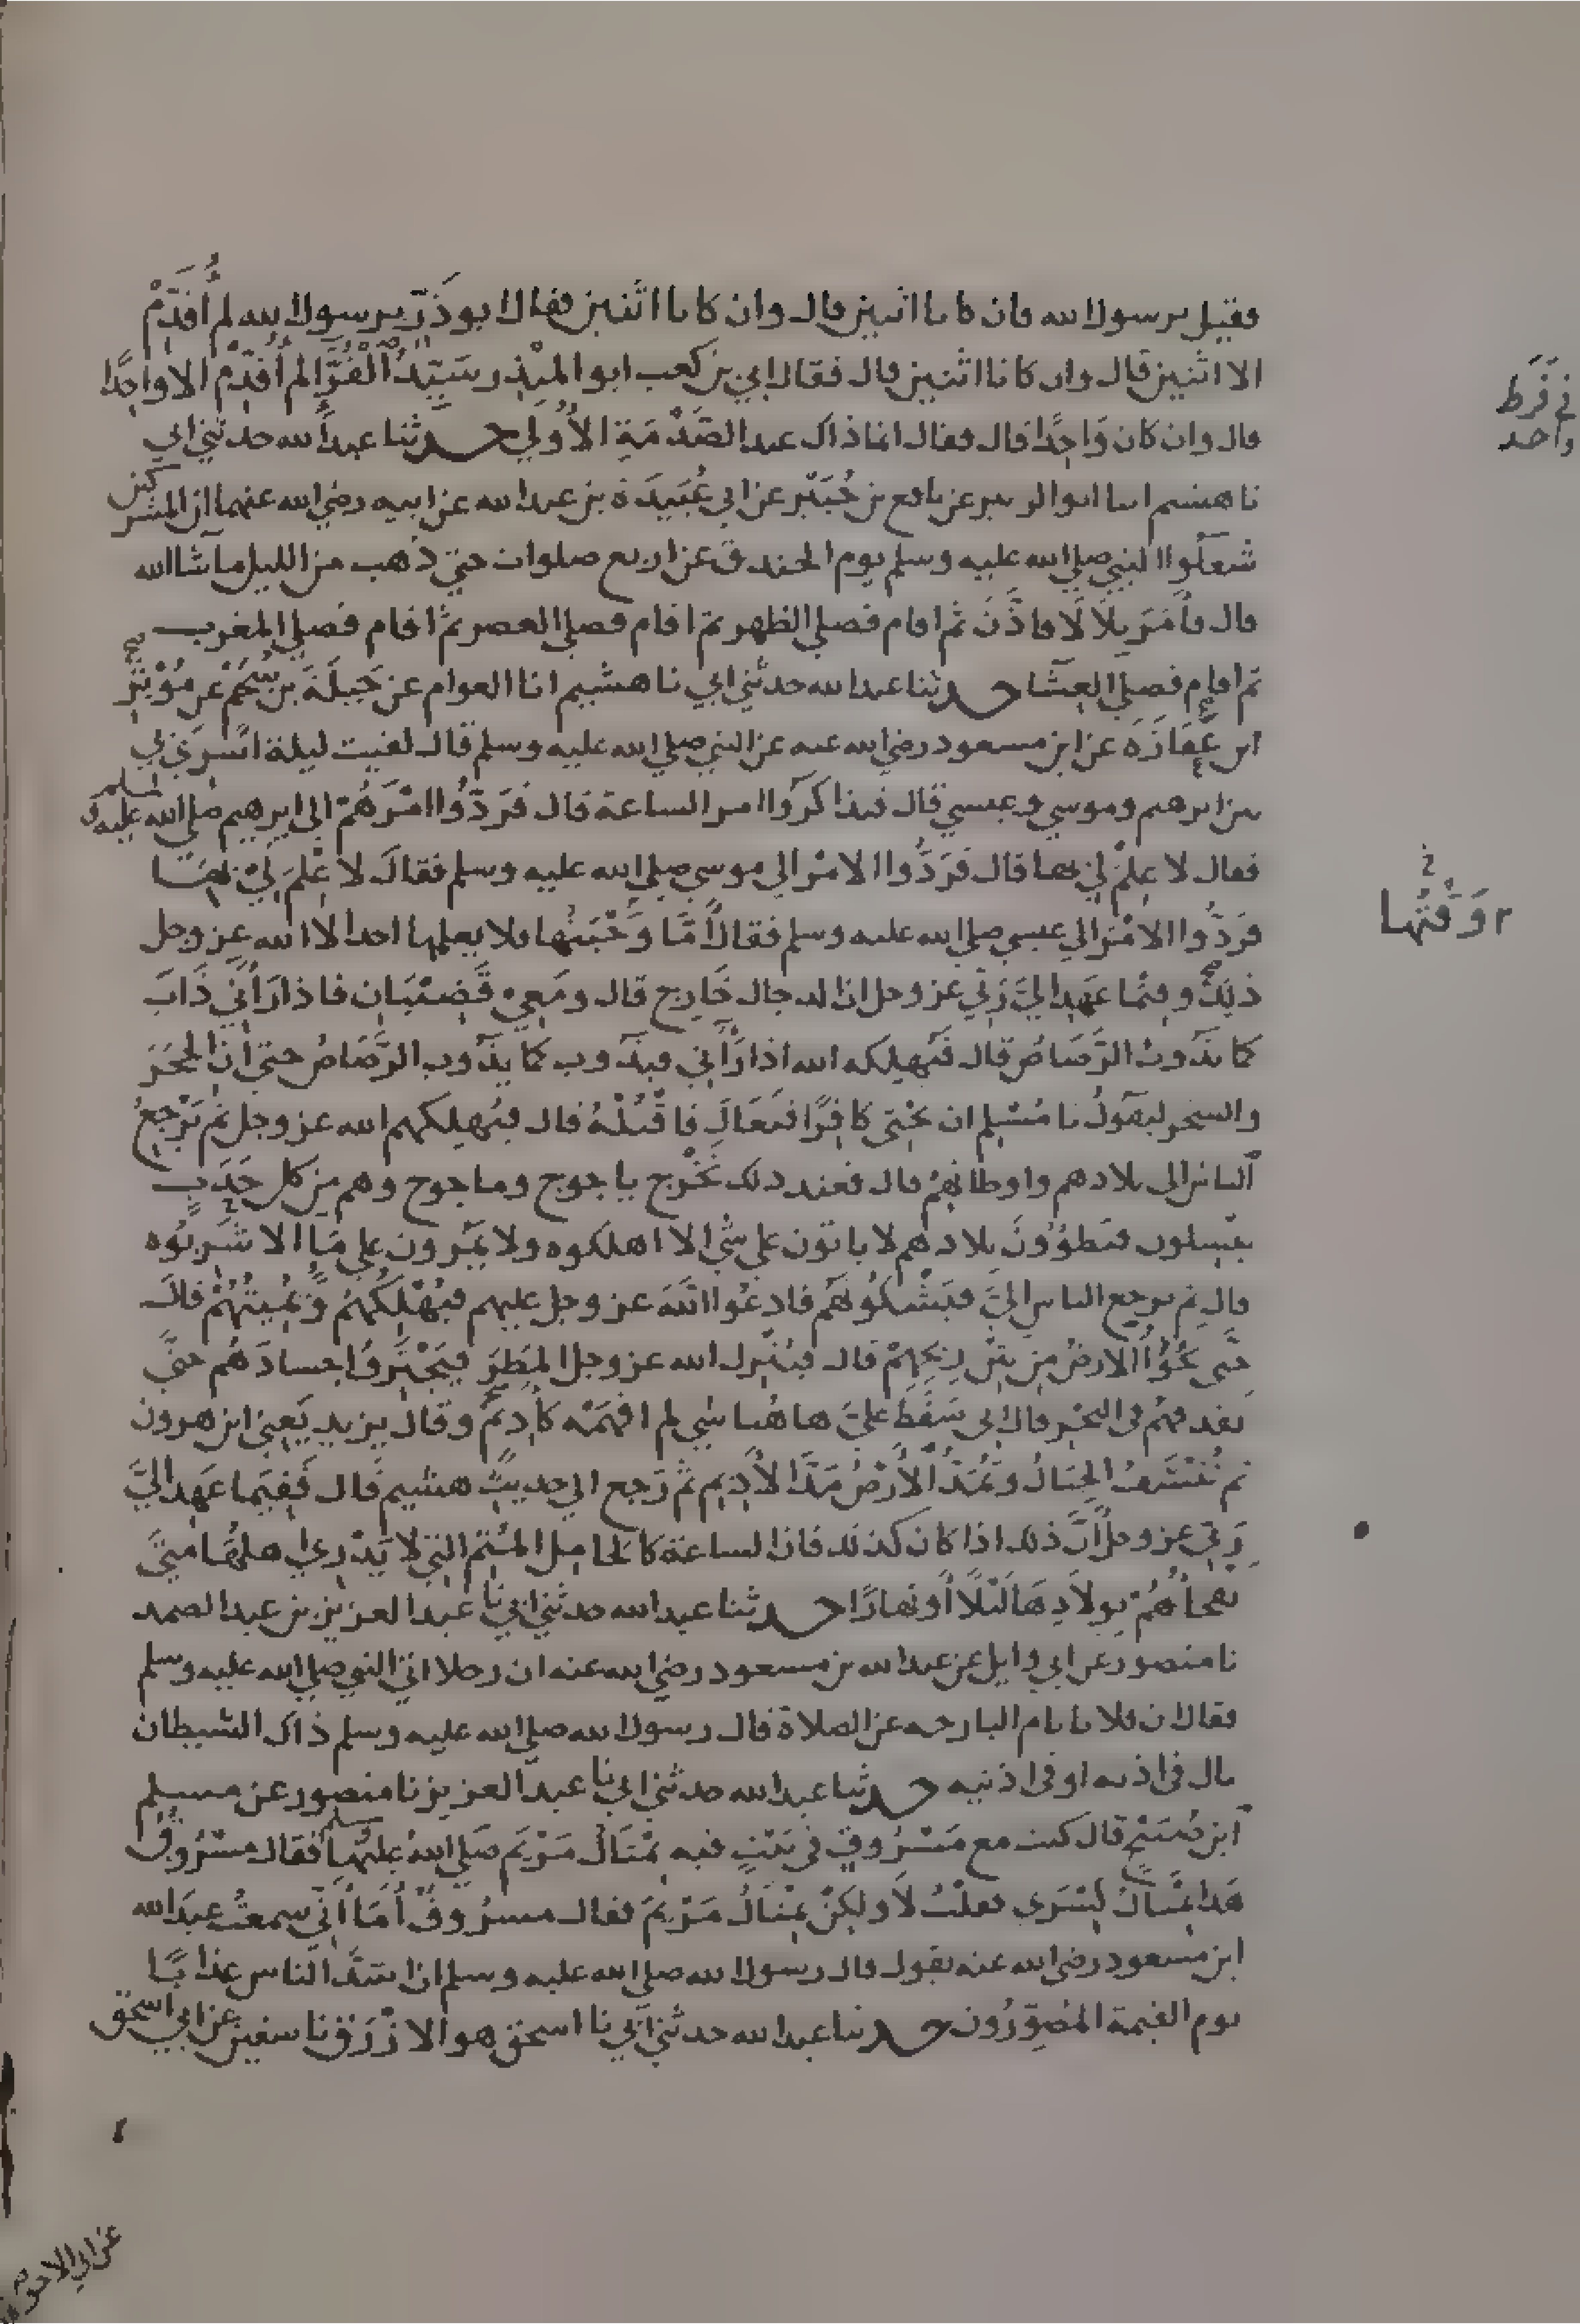 فقيل يرسول الله فان كانا اثنين قال وان كانا اثنين فقال ابو ذَرّ يرسول الله لم أُقَدِّمْ
الا اثنين قال وان كانا اثنين قال فقال ابي بن كعب ابو المنذر سَيِّدُ الْقُرَّا لم أُقَدِّمْ الا واحِدًا
في فَرَط
واحد
قال وان كان وَاحِدًا قال فقال انما ذاك عند الصَّدْمَةِ الأُولَي حدثنا عبد الله حدثني ابي
نا هشيم انبا ابو الزبير عن نافع بن جُبَيْر عن ابي عُبَيدَة بن عبد الله عن ابيه رضي الله عنهما ان المشركين
شَغَلُوا النبي صلي الله عليه وسلم يوم الخندق عن اربع صلوات حتي ذَهب من الليل ما شا الله
قال فأَمَرَ بِلَالًا فاذَّنَ ثم اقام فصلي الظهر ثم اقام فصلي العصر ثم اقام فصلي المغرب
ثم اقام فصلي العِشَا حدثنا عبد الله حدثني ابي نا هشيم انا العوام عن جَبَلَةَ بن سُحَيْمٍ عن مُؤْثِرِ
ابن عَفَازَةَ عن ابن مسعود رضي الله عنه عن النبي صلي الله عليه وسلم قال لقيت ليلة اسْرِيَ بي
ابرهيم وموسي وعيسي قال فتذاكَرُوا امر الساعة قال فَرَدُّوا امْرَهُمْ الي ابرهيم صلي الله عليه وسلم
فقال لا عِلْمَ لِي بها قال فَرَدُّوا الامْرَ الي موسي صلي الله عليه وسلم فقال لا عِلْمَ لِيْ بها
فَرَدُّوا الامْرَ الي عيسي صلي الله عليه وسلم فقال أَمَّا وَجْبَتُها فلا يعلمها احد الا الله عز وجل
وَقْتُها
ذلِكَ وفيمَا عَهِدَ اليَّ رَبِّي عز وجل ان الدجال خَارِج قال ومَعِيْ قَضِيْبَانِ فاذا رَأَنِي ذَابَ
كما يَذُوبُ الرَّصَاصُ قال فَيُهلِكه الله اذا رَأَنِي فيذوب كما يذوب الرَّصَاصُ حتي أَن الحَجَرَ
والشجر ليقولُ يا مُسْلِم ان تحْتِى كافِرًا فتَعَالَ فَاقْتُلْهُ قال فيُهلِكهم الله عز وجل ثم يَرْجِعُ
الناس الى بلادهم واوطانِهِمْ قال فعند ذلك يَخْرج ياجوج وماجوج وهم من كل حَدَبٍ
ينسلون فَيَطؤُونَ بلادهم لا ياتون على شَي الا اهلكوه ولا يَمُرون على مَا الا شَرِبُوه
قال ثم يرجع الناس اليَّ فيَشْكُونَهُم فادعُوا اللهَ عز وجل عليهم فيُهْلِكُهُمْ وَيُمِيتُهُمْ قال
حتى تَجْوَا الارضُ مِن نَتْنِ رِيحِهِمْ قال فيُنْزِل الله عز وجل المَطَرَ فيَجْتَرِفُ اجسادَهُم حتى
يقذفهُم في البَحْر قال ابي سَقَطَ عليَّ هاهُنا شي لم افْهَمْه كأَدِيم وقال يزيد يَعني ابن هرون
ثم تُنْسَفُ الجِبَالُ وتُمَدُّ الأَرْضُ مَدَّ الأَدِيمِ ثم رَجع الي حديث هشيم قال فَفِيمَا عَهِدَ اليَّ
رَبِّي عز وجل أَنَّ ذلك اذا كان كذلك فان الساعة كالحَامِلِ المُتِمِّ التي لا يَدْرِي اهلُهَا متَى
تفجأُهُمْ بِوِلَادِهَا لَيْلًا أَو نَهارًا حدثنا عبد الله حدثني ابي نا عبد العزيز بن عبد الصمد
نا منصور عن ابي وايل عن عبد الله بن مسعود رضي الله عنه ان رجلا اتي النبي صلي الله عليه وسلم
فقال ان فلانا نام البارحه عن الصلاة قال رسول الله صلي الله عليه وسلم ذاك الشيطان
بال في اذنه او في اذنيه حدثنا عبد الله حدثني ابي نا عبد العزيز نا منصور عن مسلم
ابن صُبَيْحٍ قال كنت مع مَسْرُوقٍ في بَيْتٍ فيه تِمْثَالُ مَرْيَم صَلي الله عليهما وسلم فقال مَسْرُوقٌ
هَذا تِمْثَالُ كِسْرَى فقلْتُ لَا ولكِنْ تِمْثَالُ مَرْيَمَ فقال مسرُوقٌ أَمَا اِنِّي سمعتُ عبدَ الله
ابن مسعود رضي الله عنه يقول قال رسول الله صلي الله عليه وسلم ان اشَدَّ الناس عذابًا
يوم القيمة المُصِوِّرُون حدثنا عبد الله حدثني ابي نا اسحق هو الازْرَق نا سفين عن ابي اسحق
عن ابي الاحوص